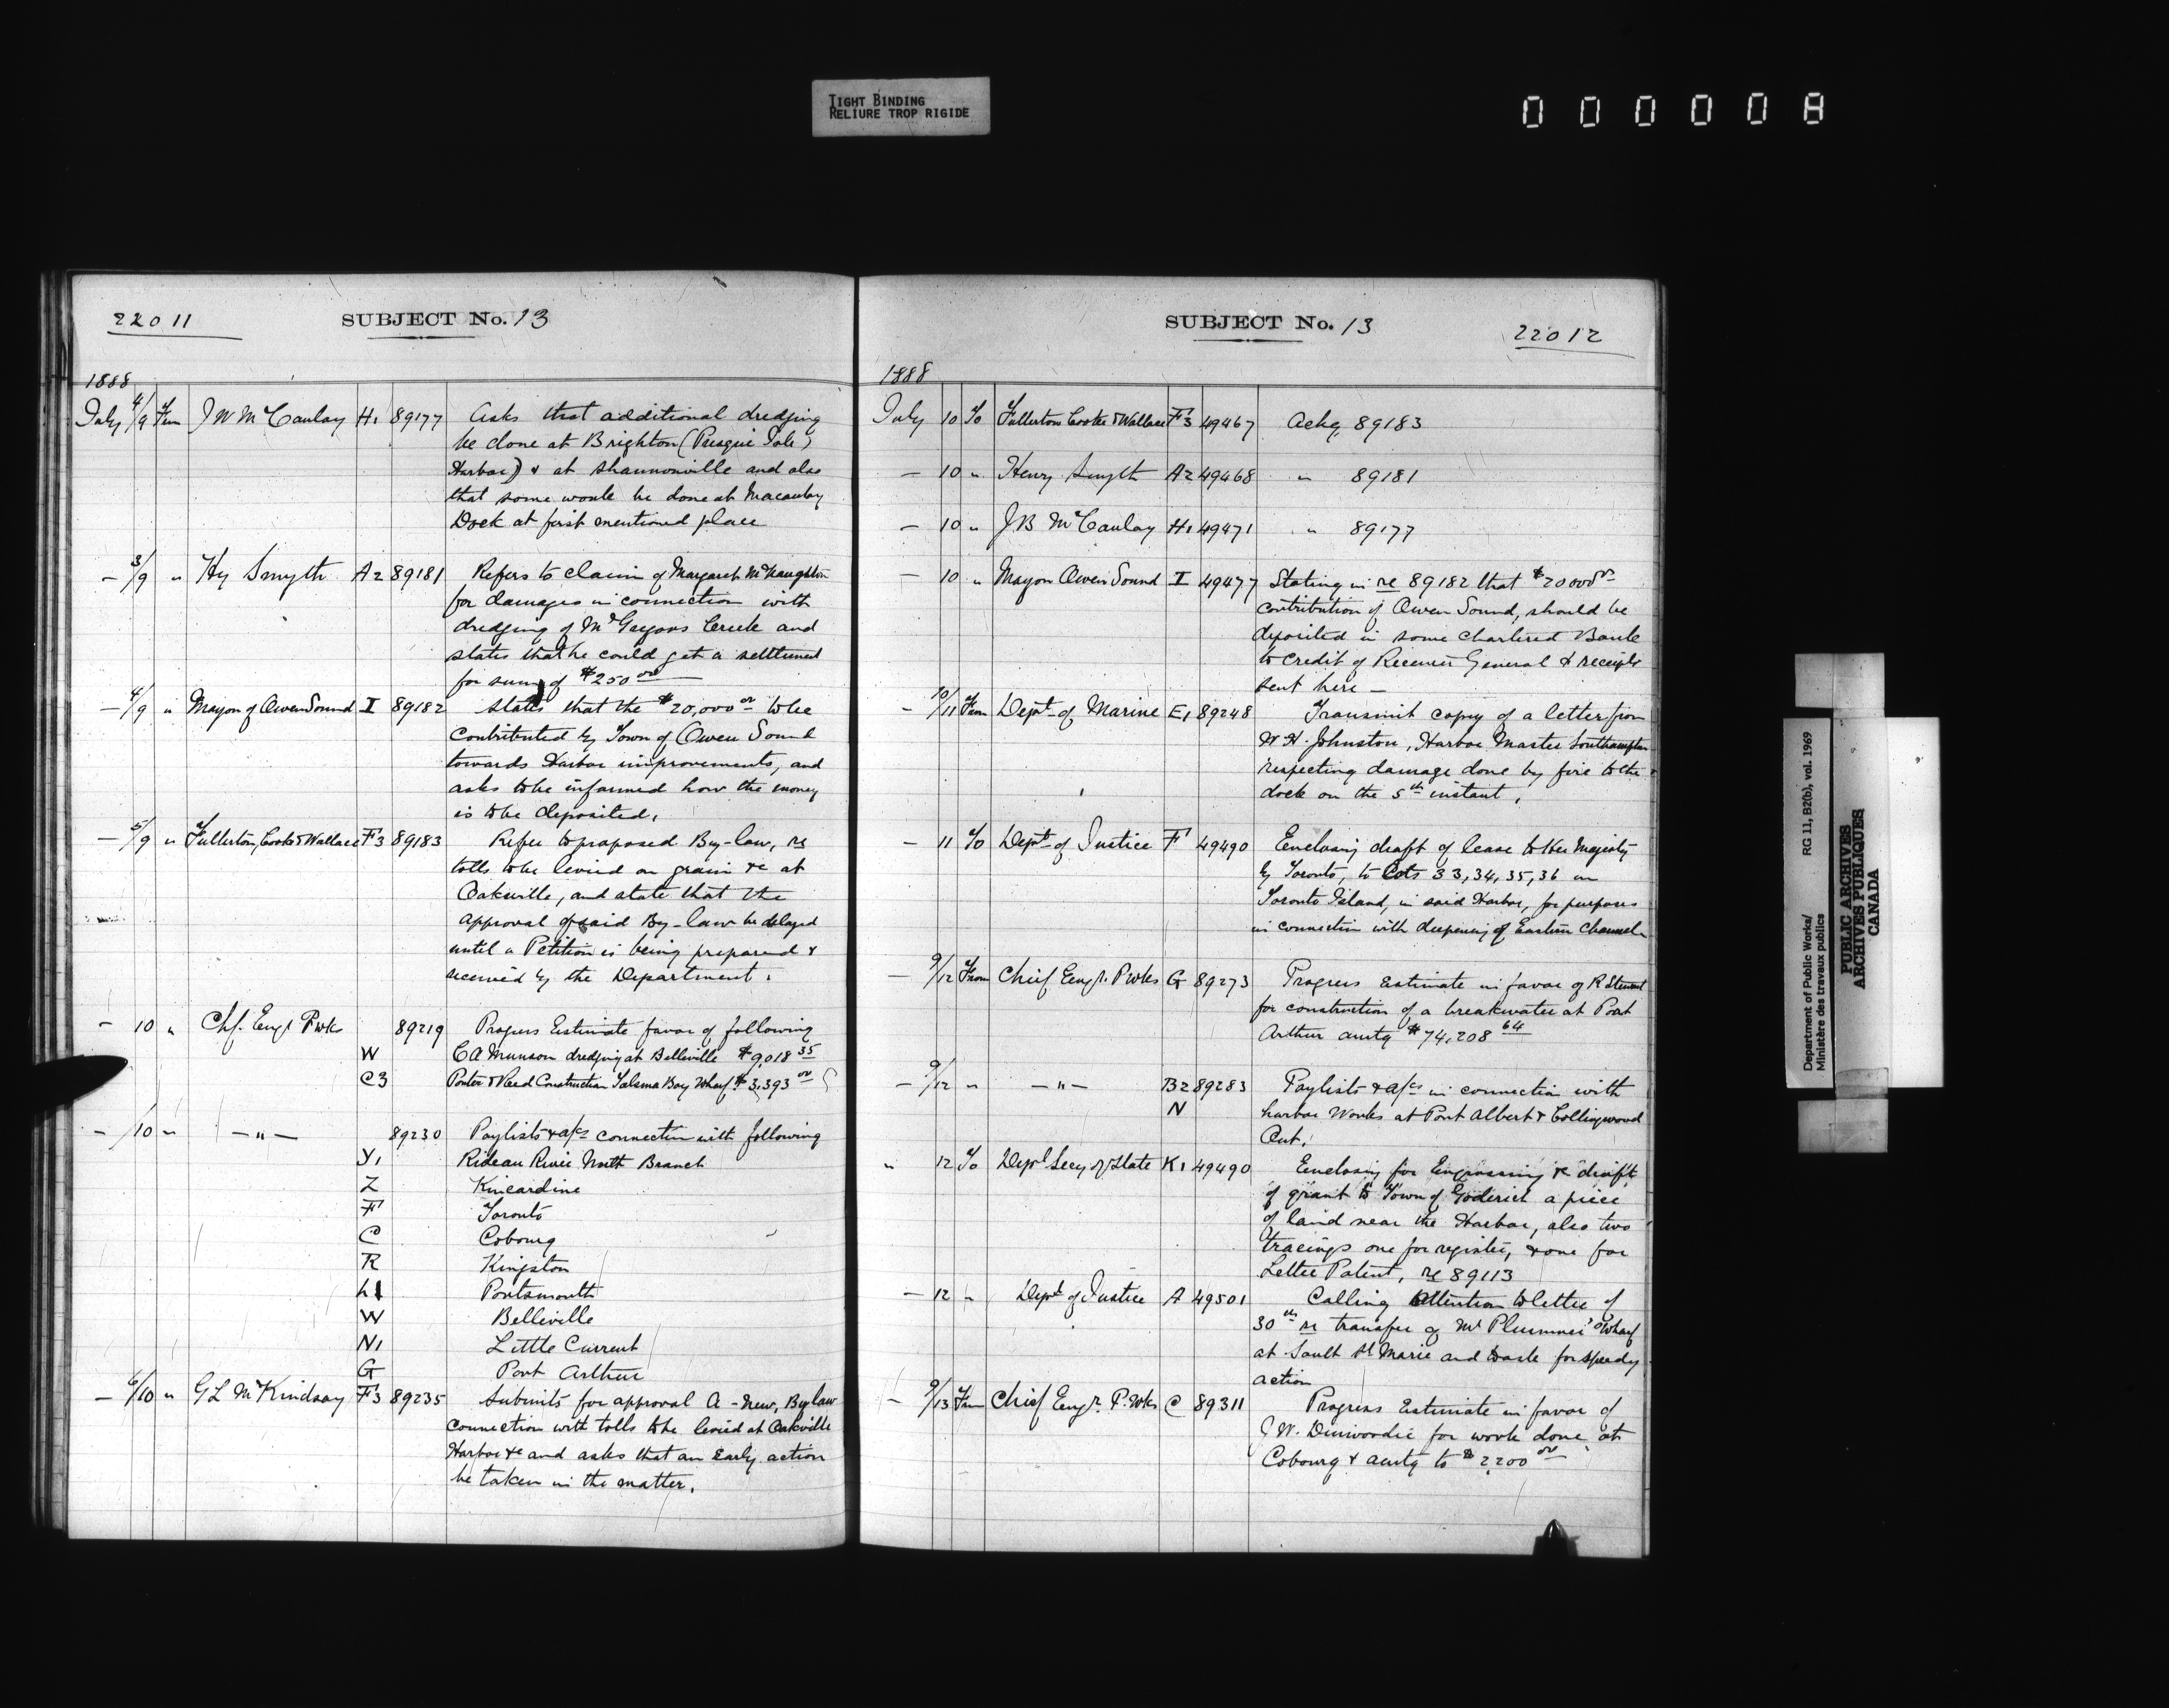 TIGHT BINDING
RELIURE TROP RIGIDE
000008
22011
SUBJECT No. 13
1888
July 4/9 From J W McCaulay H1 89177 Asks that additional dredging
be done at Brighton (Presqu'Isle)
Harbor) & at Shannonville and also
that some work be done at Macaulay
Dock at first mentioned place
— 3/9 " Hy Smyth A2 89181 Refers to claim of Margaret McNaughton
for damages in connection with
dredging of McGregors Creek and
states that he could get a settlement
for sum of $250 00
— 4/9 " Mayor of Owen Sound I 89182 States that the $20,000 00 to be
contributed by Town of Owen Sound
towards Harbor improvements, and
asks to be informed how the money
is to be deposited.
— 5/9 " Fullerton, Cooke & Wallace F3 89183 Refer to proposed By-law, re
tolls to be levied on grain &c at
Oakville, and state that the
approval of said By-law be delayed
until a Petition is being prepared &
received by the Department.
— 10 " Chf. Engr P.Wks 89219 Progress Estimate favor of following
W C A Munson dredging at Belleville $9,018 35
C3 Porter & Reed Construction Wharf $3,393 00
— /10 " — " — 89230 Paylists & a/cs connection with following
Y1 Rideau River North Branch
Z Kincardine
F Toronto
C Cobourg
R Kingston
L1 Portsmouth
W Belleville
N1 Little Current
G Port Arthur
— 6/10 " G L McKindsay F3 89235 Submits for approval a - new, By law
connection with tolls to be levied at Oakville
Harbor &c and asks that an early action
be taken in the matter.
SUBJECT No. 13
22012
1888
July 10 To Fullerton Cooke & Wallace F3 49467 Ackg 89183
— 10 " Henry Smyth A2 49468 " 89181
— 10 " J B McCaulay H1 49471 " 89177
— 10 " Mayor Owen Sound I 49477 Stating in re 89182 that $20000 00
contribution of Owen Sound, should be
deposited in some Chartered Bank
to credit of Receiver General & receipts
sent here —
— 10/11 From Dept of Marine E1 89248 Transmit copy of a letter from
W H. Johnston, Harbor Master Southampton
respecting damage done by fire to the
dock on the 5th instant.
— 11 To Dept of Justice F 49490 Enclosing draft of lease to Her Majesty
by Toronto, to Lots 33, 34, 35, 36 on
Toronto Island, in said Harbor, for purposes
in connection with deepening of Eastern Channel
— 9/12 From Chief Engr. P Wks G 89273 Progress Estimate in favor of R Stewart
for construction of a breakwater at Port
Arthur amtg $74,208 64
— 9/12 " — " — B2 89283 Paylists & a/cs in connection with
N harbor Works at Port Albert & Collingwood
Ont.
" 12 To Dept Secy of State K1 49490 Enclosing for Engrossing &c draft
of grant to Town of Goderich a piece
of land near the Harbor, also two
tracings one for register, & one for
Letter Patent, re 89113
— 12 " Dept of Justice A 49501 Calling attention to letter of
30th re transfer of Mr Plummer's Wharf
at Sault St Marie and to ask for speedy
action
— 9/13 From Chief Engr. P. Wks C 89311 Progress Estimate in favor of
J W. Dinwoodie for work done at
Cobourg & amtg to $2200 00
Department of Public Works/
Ministère des travaux publics
RG 11, B2(b), vol. 1969
PUBLIC ARCHIVES
ARCHIVES PUBLIQUES
CANADA